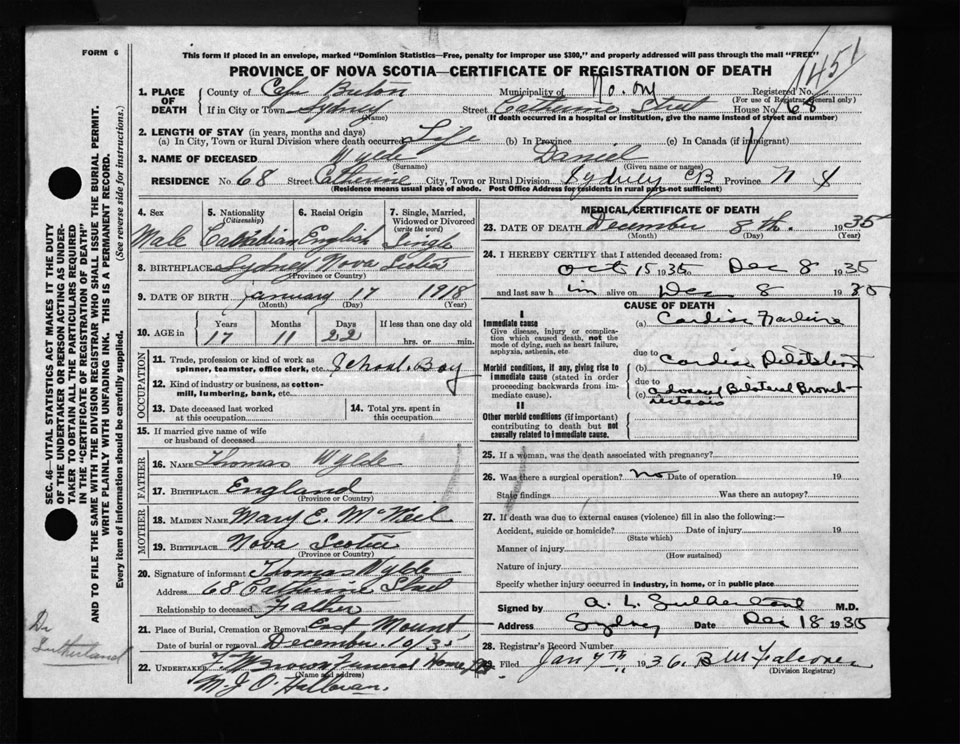 FORM 6
This form if placed in an envelope, marked "Dominion Statistics—Free, penalty for improper use $300," and properly addressed will pass through the mail "FREE"
PROVINCE OF NOVA SCOTIA—CERTIFICATE OF REGISTRATION OF DEATH
1451
1. PLACE OF DEATH County of Cape Breton Municipality of Registered No.
(For use of Registrar General only)
If in City or Town Sydney Street Catherine Street House No. 68
(Name) (If death occurred in a hospital or institution, give the name instead of street and number)
2. LENGTH OF STAY (in years, months and days)
(a) In City, Town or Rural Division where death occurred Life (b) In Province (c) In Canada (if immigrant)
3. NAME OF DECEASED Wylde Daniel
(Surname) (Given name or names)
RESIDENCE No. 68 Street Catherine City, Town or Rural Division Sydney CB Province N S
(Residence means usual place of abode. Post Office Address for residents in rural parts not sufficient)
4. Sex 5. Nationality (Citizenship) 6. Racial Origin 7. Single, Married, Widowed or Divorced (write the word)
Male Canadian English Single
8. BIRTHPLACE Sydney Nova Scotia
(Province or Country)
9. DATE OF BIRTH January 17 1918
(Month) (Day) (Year)
10. AGE in Years Months Days If less than one day old
17 11 22 hrs. or min.
OCCUPATION
11. Trade, profession or kind of work as spinner, teamster, office clerk, etc. School Boy
12. Kind of industry or business, as cotton-mill, lumbering, bank, etc.
13. Date deceased last worked at this occupation 14. Total yrs. spent in this occupation
15. If married give name of wife or husband of deceased
FATHER
16. NAME Thomas Wylde
17. BIRTHPLACE England
(Province or Country)
MOTHER
18. MAIDEN NAME Mary E. McNeil
19. BIRTHPLACE Nova Scotia
(Province or Country)
20. Signature of informant Thomas Wylde
Address 68 Catherine Street
Relationship to deceased Father
21. Place of Burial, Cremation or Removal East Mount
Date of burial or removal December 10/35
22. UNDERTAKER T. Brown Funeral Home
(Name and address)
M. J. O'Halloran.
MEDICAL CERTIFICATE OF DEATH
23. DATE OF DEATH December 8th. 1935
(Month) (Day) (Year)
24. I HEREBY CERTIFY that I attended deceased from:
Oct 15 1935 to Dec 8 1935
and last saw him alive on Dec 8 1935
CAUSE OF DEATH
I
Immediate cause
Give disease, injury or complication which caused death, not the mode of dying, such as heart failure, asphyxia, asthenia, etc.
(a) Cardiac Failure
due to
Morbid conditions, if any, giving rise to immediate cause (stated in order proceeding backwards from immediate cause).
(b) Cardiac Dilatation
due to
(c) Advanced Bilateral Bronchiectasis
II
Other morbid conditions (if important) contributing to death but not causally related to immediate cause.
25. If a woman, was the death associated with pregnancy?
26. Was there a surgical operation? No Date of operation 19
State findings Was there an autopsy?
27. If death was due to external causes (violence) fill in also the following:—
Accident, suicide or homicide? Date of injury 19
(State which)
Manner of injury
(How sustained)
Nature of injury
Specify whether injury occurred in industry, in home, or in public place
Signed by A. L. Sutherland M.D.
Address Sydney Date Dec 18 1935
28. Registrar's Record Number
29. Filed Jan 7th 1936. B W Falconer
(Division Registrar)
SEC. 46—VITAL STATISTICS ACT MAKES IT THE DUTY OF THE UNDERTAKER OR PERSON ACTING AS UNDERTAKER TO OBTAIN ALL THE PARTICULARS REQUIRED IN THE "CERTIFICATE OF REGISTRATION OF DEATH" AND TO FILE THE SAME WITH THE DIVISION REGISTRAR WHO SHALL ISSUE THE BURIAL PERMIT.
WRITE PLAINLY WITH UNFADING INK. THIS IS A PERMANENT RECORD.
Every item of information should be carefully supplied. (See reverse side for instructions.)
Dr Sutherland